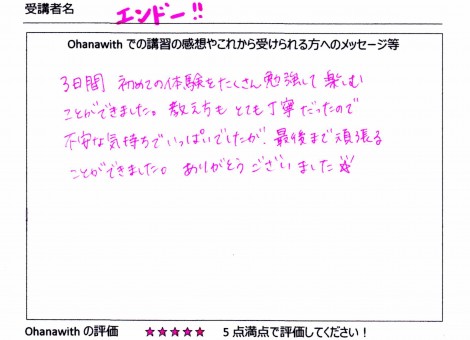 受講者名 エンドー!!
Ohanawith での講習の感想やこれから受けられる方へのメッセージ等
3日間 初めての体験をたくさん勉強して楽しむ
ことができました。教え方もとても丁寧だったので
不安な気持ちでいっぱいでしたが、最後まで頑張る
ことができました。ありがとうございました☆
Ohanawith の評価 ★★★★★ 5点満点で評価してください！